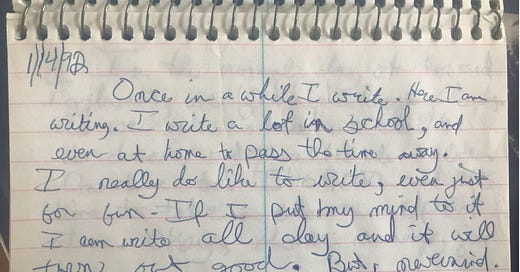 1/14/92
Once in a while I write. Here I am
writing. I write a lot in school, and
even at home to pass the time away.
I really do like to write, even just
for fun. If I put my mind to it
I can write all day and it will
turn out good. But, nevermind.